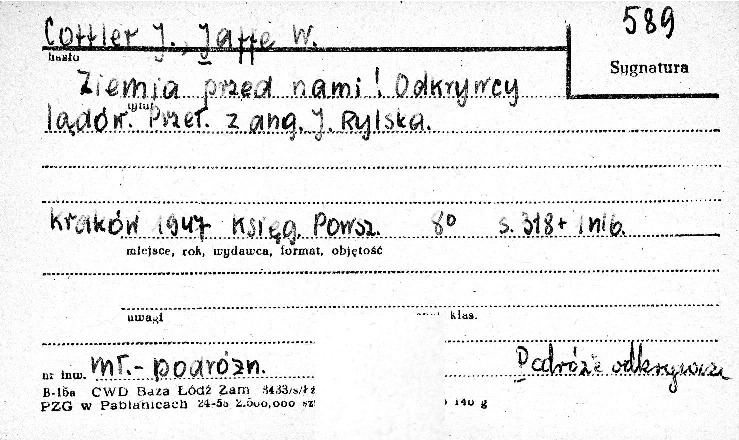 Cottler J., Jaffe W.
589
hasło
Sygnatura
Ziemia przed nami! Odkrywcy
tytuł
lądów. Przeł. z ang. J. Rylska.
Kraków 1947 Księg. Powsz. 8° s. 318+1nlb.
miejsce, rok, wydawca, format, objętość
uwagi
klas.
nr inw. mł.-podróżn.
Podróże odkrywcze
B-15a CWD Baza Łódź Zam 3433/s/Łż
PZG w Pabianicach 24-5a 2.500,000 sz
140 g